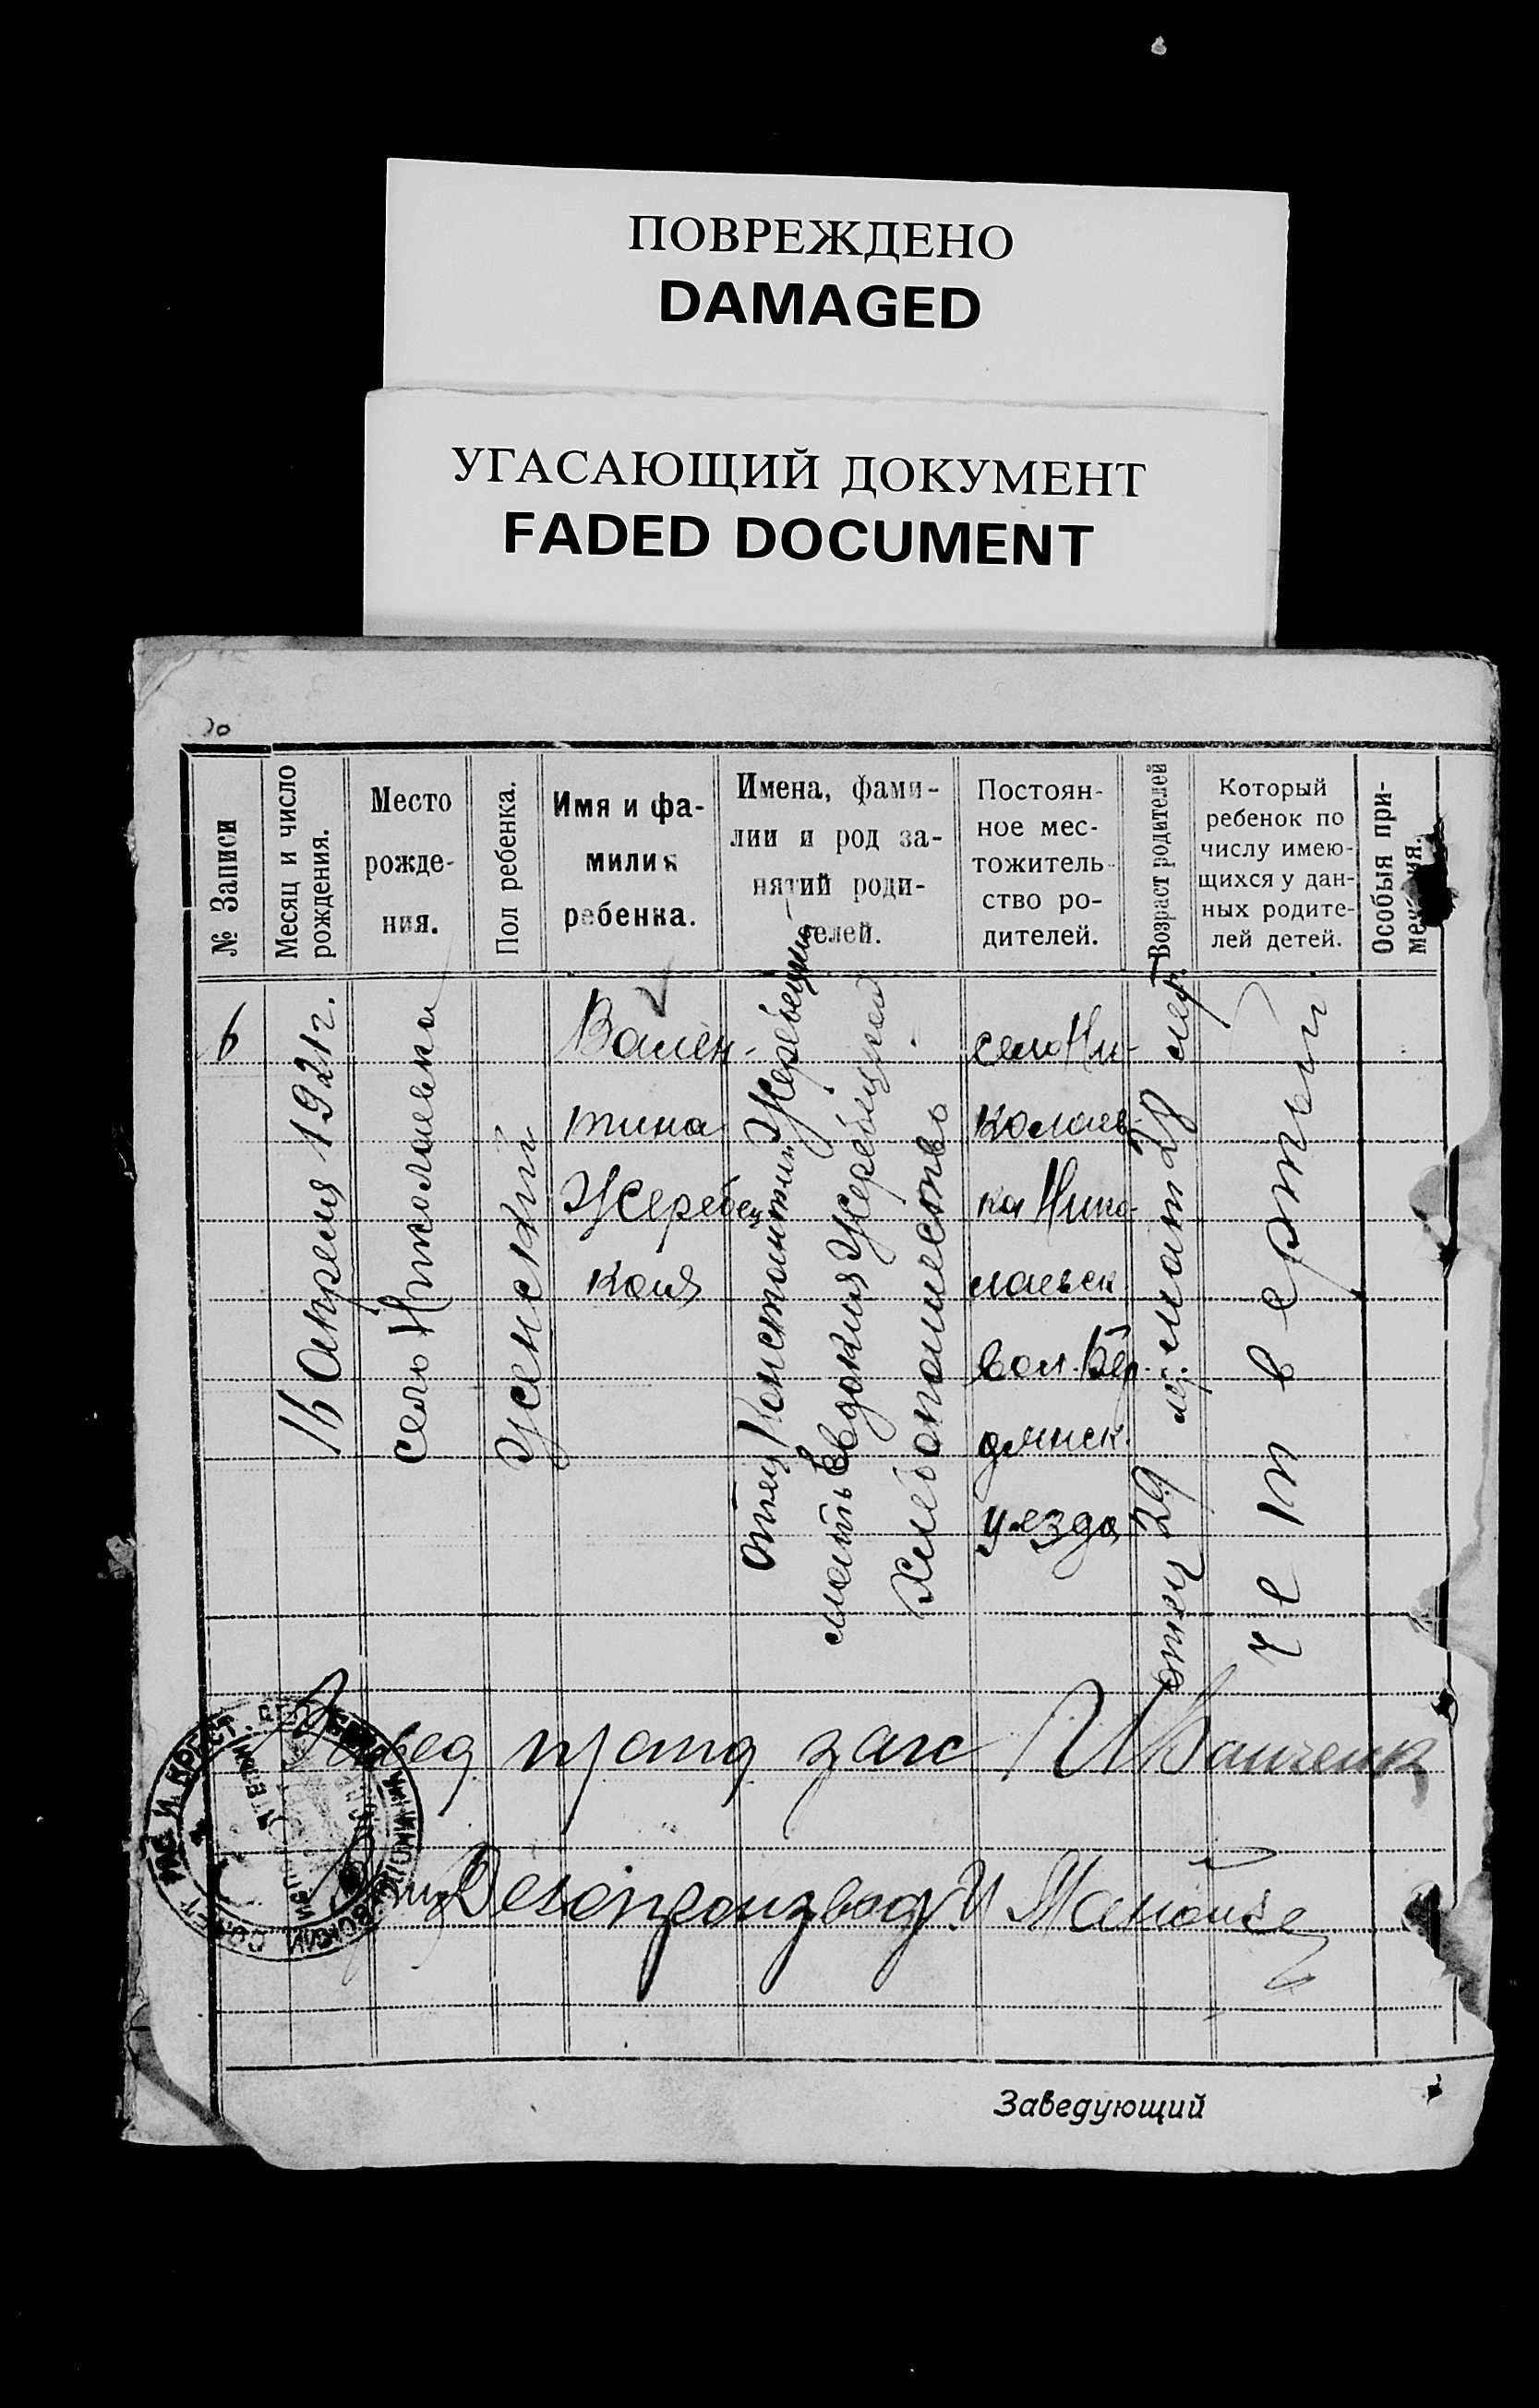 ПОВРЕЖДЕНО
DAMAGED
УГАСАЮЩИЙ ДОКУМЕНТ
FADED DOCUMENT
№ Записи
Месяц и число
рождения.
Место
рожде-
ния.
Пол ребенка.
Имя и фа-
милия
ребенка.
Имена, фами-
лии и род за-
нятий роди-
телей.
Постоян-
ное мес-
тожитель-
ство ро-
дителей.
Возраст родителей
Который
ребенок по
числу имею-
щихся у дан-
ных родите-
лей детей.
Особыя при-
мечания.
6
16 Апреля 1921 г.
село Николаевка
Женский
Вален-
тина
Жеребец-
кая
отец Константин Жеребецкий
мать Евдокия Жеребецкая
Хлебопашество
село Ни-
колаев-
ка Нико-
лаевск.
вол. Бер-
дянск.
уезда
отец 29 л. мат 28 лет.
четвертый
Завед загс Иванченк
Делопроизвод
Заведующий